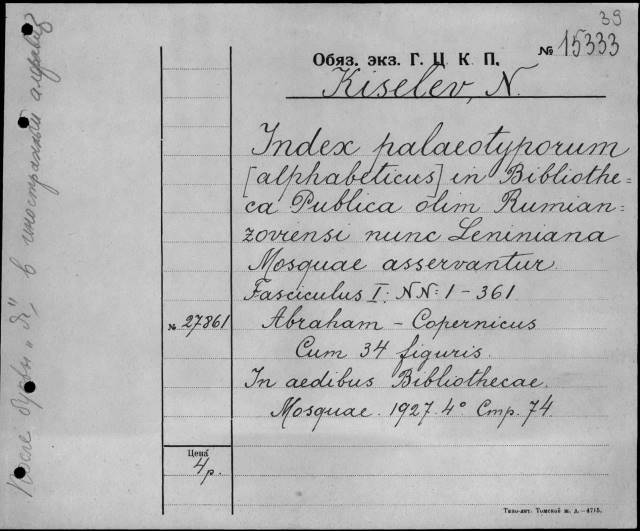 39
Обяз. экз. Г. Ц. К. П. № 15333
Kiselev, N.
Index palaeotyporum
[alphabeticus] in Bibliothe-
ca Publica olim Rumian-
zoviensi nunc Leniniana
Mosquae asservantur.
Fasciculus I: NN: 1 - 361
№ 27861
Abraham - Copernicus
Cum 34 figuris.
In aedibus Bibliothecae.
Mosquae. 1927. 4° Стр. 74.
Цена
4 р.
Типо-лит. Томской ж. д.—4715.
После буквы „Я" в иностранный алфавит